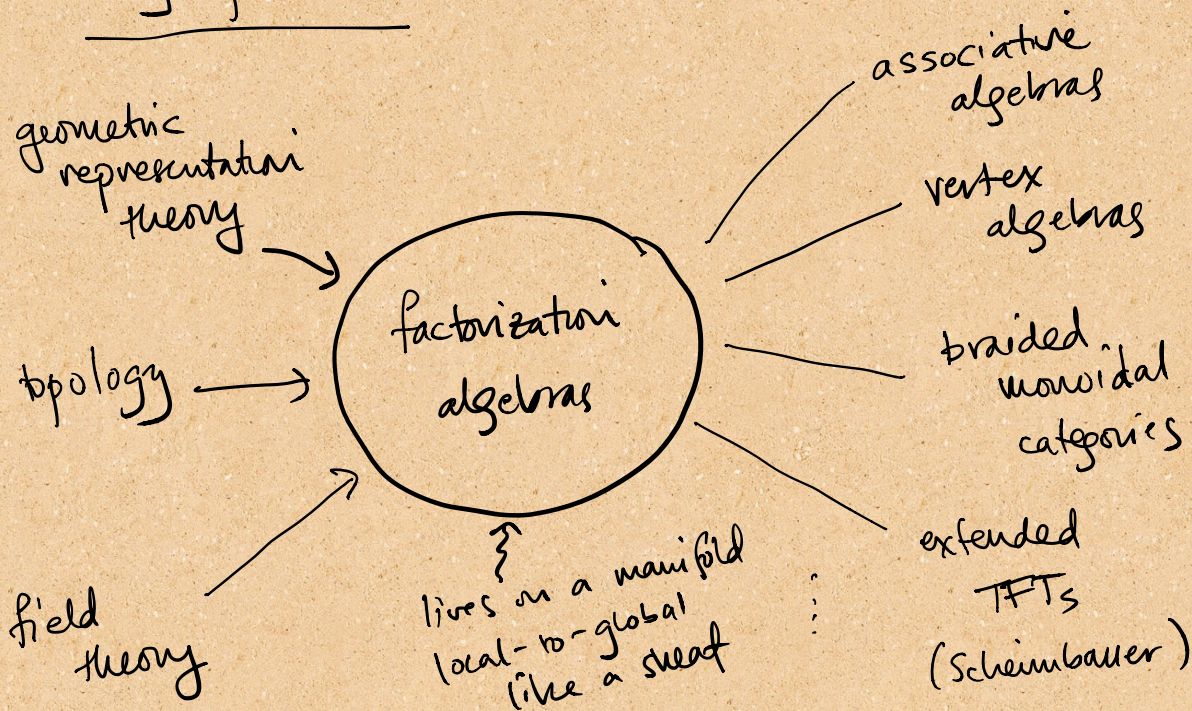 geometric
representation
theory
topology
field
theory
factorization
algebras
lives on a manifold
local-to-global
like a sheaf
associative
algebras
vertex
algebras
braided
monoidal
categories
extended
TFTs
(Scheimbauer)